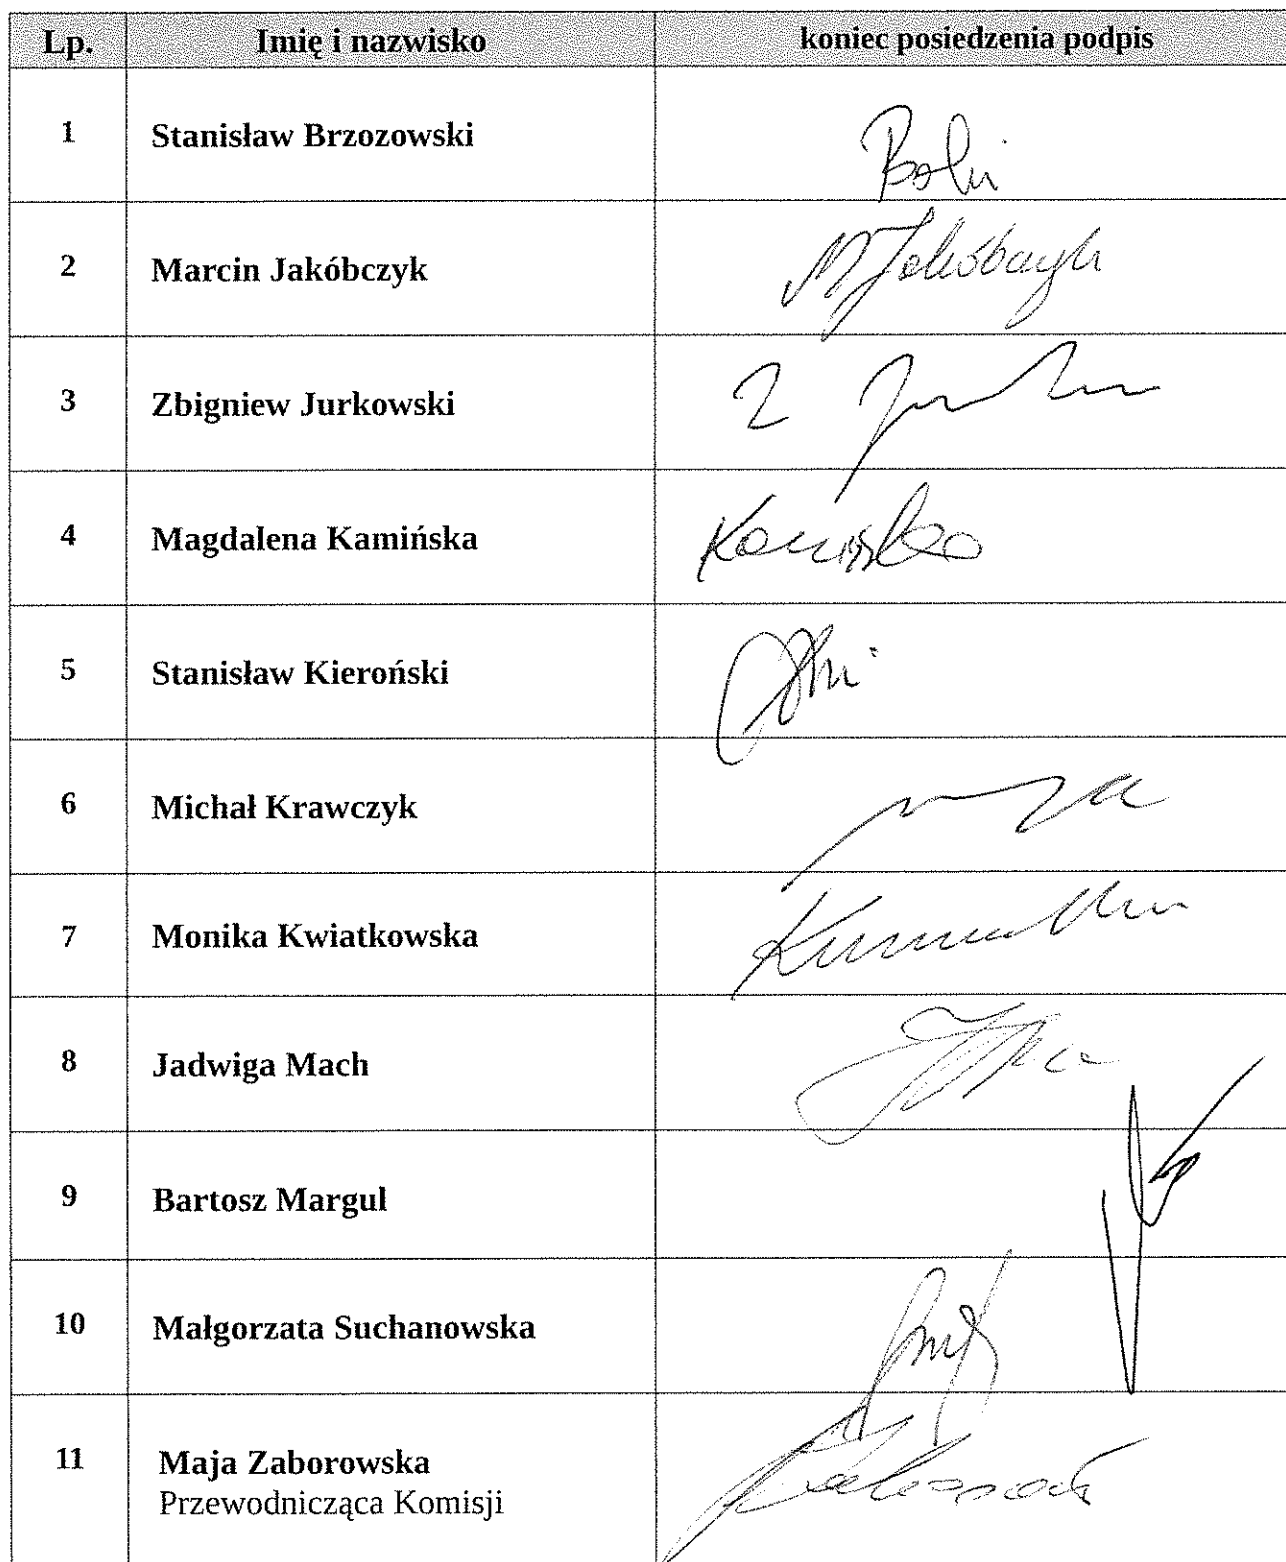 Lp. Imię i nazwisko koniec posiedzenia podpis
1 Stanisław Brzozowski
2 Marcin Jakóbczyk MJakóbczyk
3 Zbigniew Jurkowski
4 Magdalena Kamińska Kamińska
5 Stanisław Kieroński
6 Michał Krawczyk
7 Monika Kwiatkowska
8 Jadwiga Mach
9 Bartosz Margul
10 Małgorzata Suchanowska
11 Maja Zaborowska
Przewodnicząca Komisji